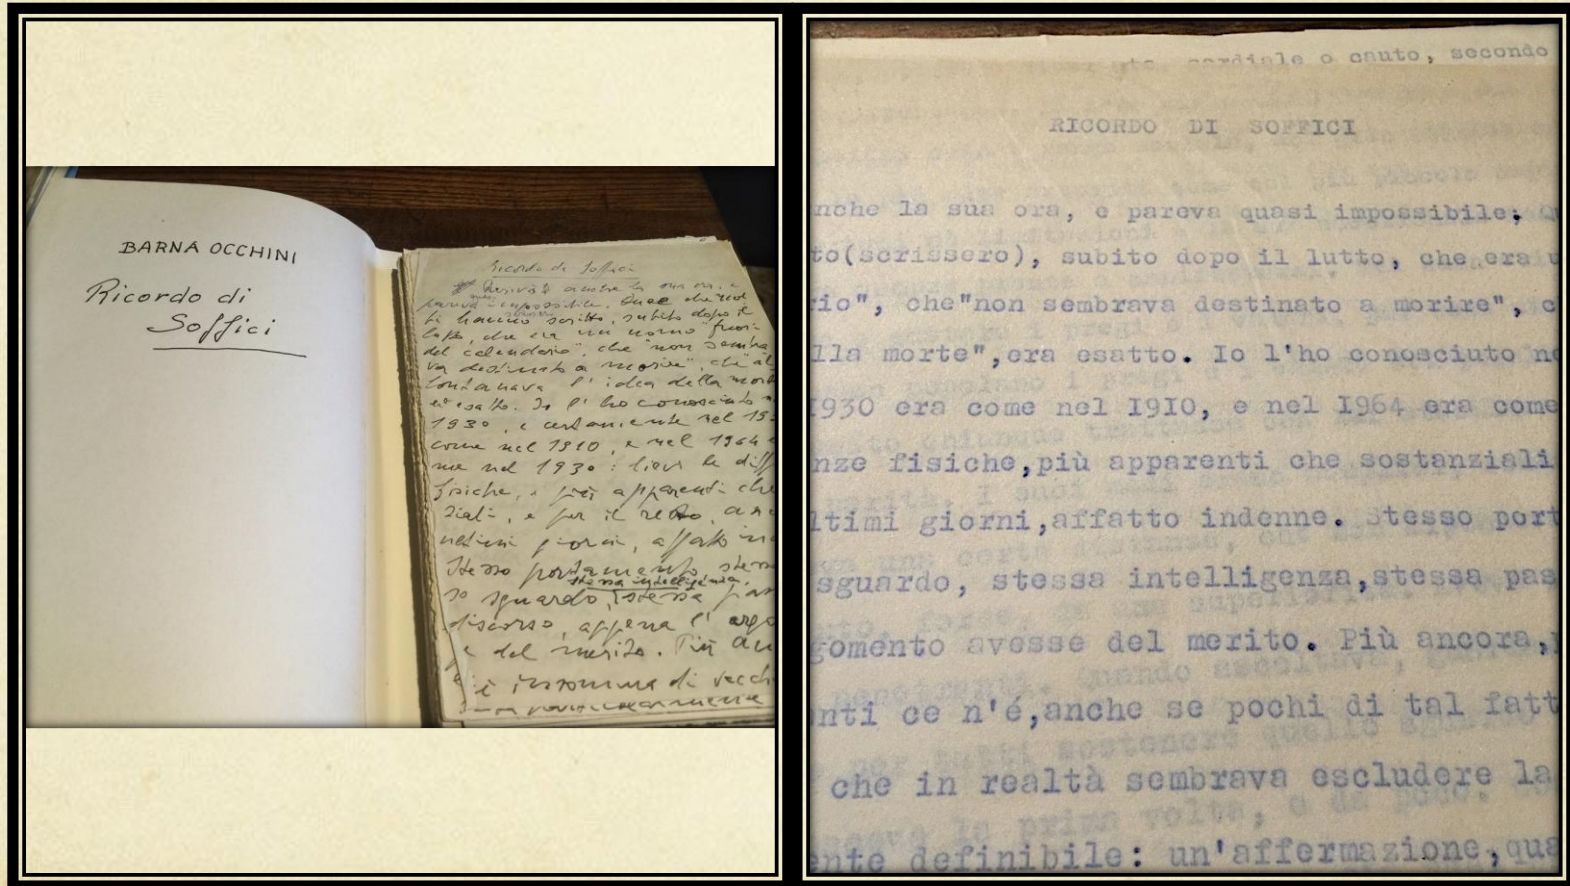 BARNA OCCHINI
Ricordo di
Soffici
Ricordo di Soffici
anche la sua ora, e
pareva quasi impossibile. Quel che mol
ti hanno scritto, subito dopo il
che era un uomo "fuori
del calendario", che "non sembra
va destinato a morire", che "al
lontanava l'idea della mort
era esatto. Io l'ho conosciuto n
1930, e certamente nel 19
come nel 1910, e nel 1964 e
me nel 1930: lievi le diff
fisiche, e più apparenti che
ziali, e per il resto, anc
ultimi giorni, affatto in
Stesso portamento, stes
stessa intelligenza,
so sguardo, stessa pas
discorso, appena l'argo
se del merito. Più an
è insomma di vecch
cordiale o cauto, secondo
RICORDO DI SOFFICI
nche la sua ora, e pareva quasi impossibile; Qu
to(scrissero), subito dopo il lutto, che era u
rio", che"non sembrava destinato a morire", c
lla morte",era esatto. Io l'ho conosciuto ne
1930 era come nel 1910, e nel 1964 era come
nze fisiche,più apparenti che sostanziali
ltimi giorni,affatto indenne. Stesso port
sguardo, stessa intelligenza,stessa pas
gomento avesse del merito. Più ancora,
nti ce n'é,anche se pochi di tal fatt
che in realtà sembrava escludere la
ente definibile: un'affermazione,qua